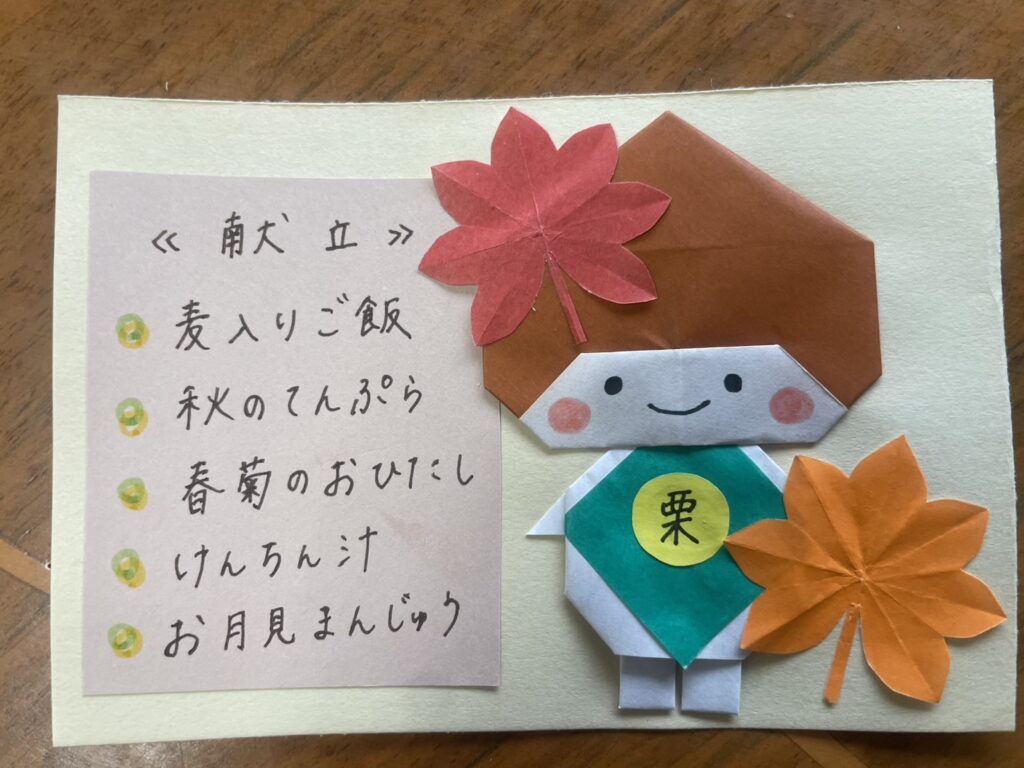 ≪ 献立 ≫
麦入りご飯
秋のてんぷら
春菊のおひたし
けんちん汁
お月見まんじゅう
栗